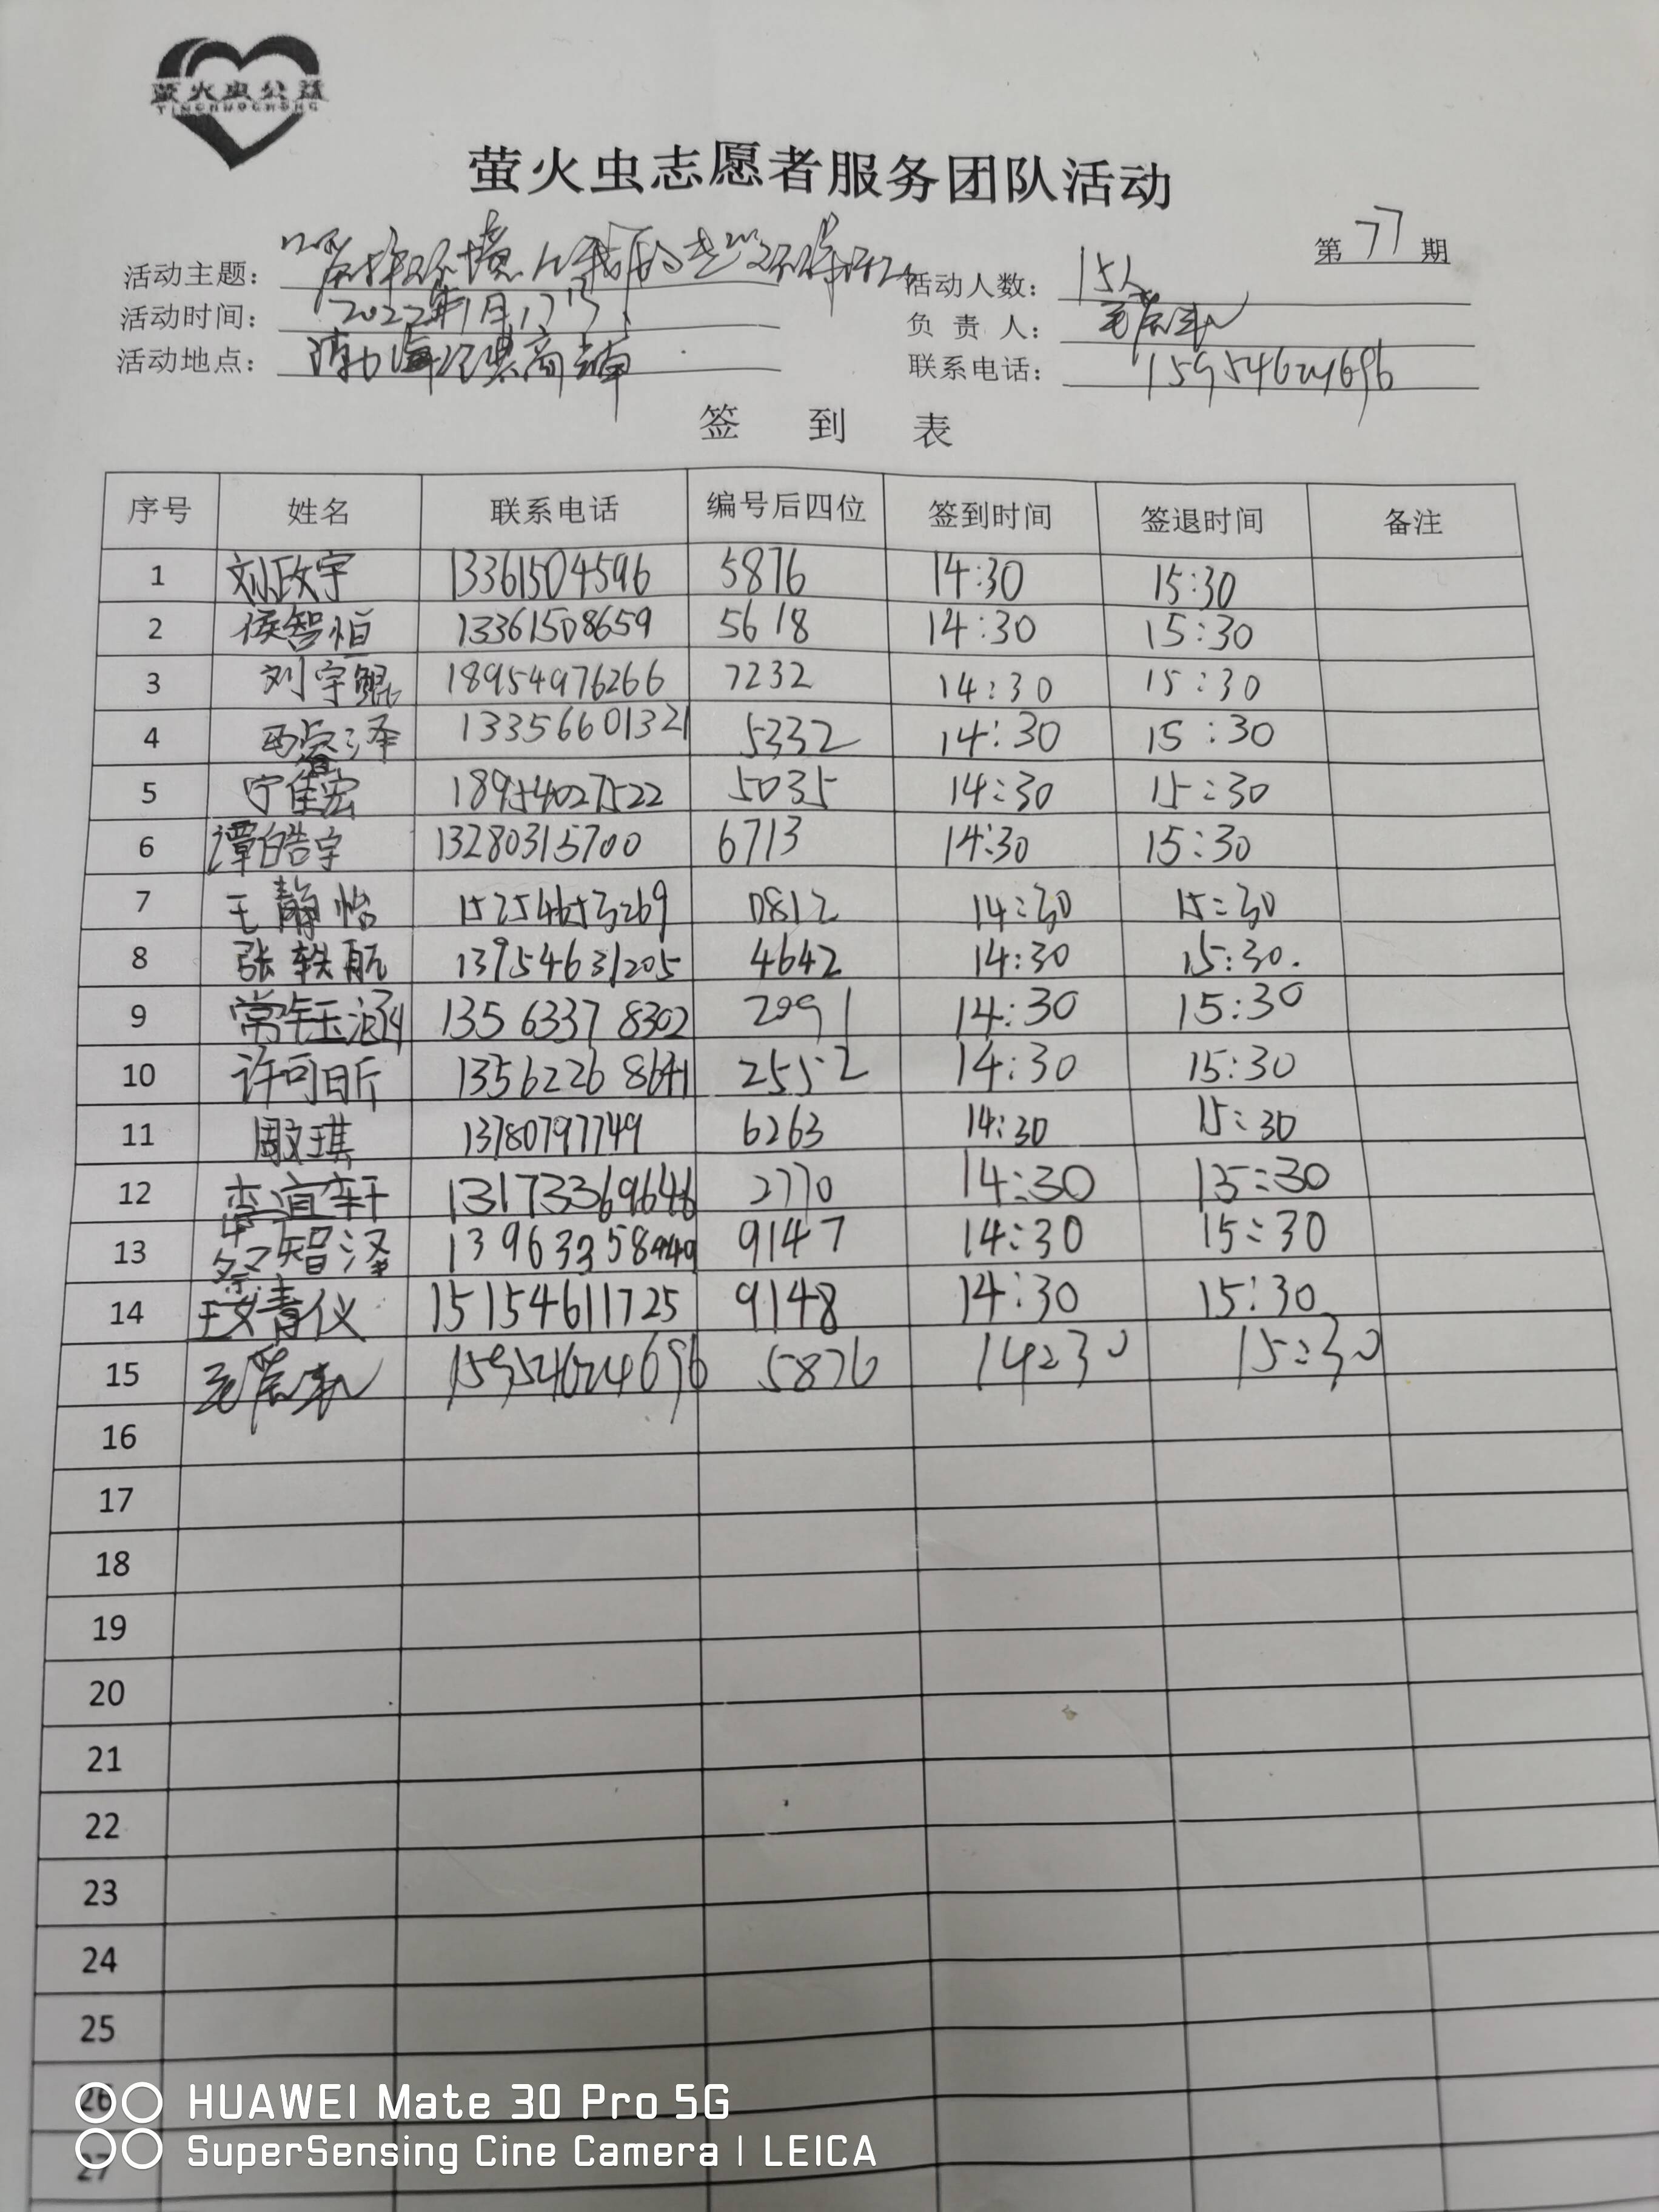 萤火虫公益
YINGHUOCHONG
萤火虫志愿者服务团队活动
第 77 期
活动主题：
活动人数： 15人
活动时间： 2022年1月17号
负 责 人：
活动地点： 渤海经典商铺
联系电话： 15954624696
签 到 表
序号 姓名 联系电话 编号后四位 签到时间 签退时间 备注
1 刘政宇 13361504596 5876 14:30 15:30
2 侯智恒 13361508659 5618 14:30 15:30
3 刘宇鲲 18954976266 7232 14:30 15:30
4 西睿泽 13356601321 5332 14:30 15:30
5 宁佳宏 18954027522 5035 14:30 15:30
6 谭皓宇 13280315700 6713 14:30 15:30
7 王静怡 15254653269 0812 14:30 15:30
8 张轶航 13954631205 4642 14:30 15:30.
9 常钰涵 135 6337 8302 2991 14:30 15:30
10 许可昕 1356226 8641 2552 14:30 15:30
11 周文琪 13780797749 6263 14:30 15:30
12 李宜轩 13173369646 2770 14:30 15:30
13 智泽 9147 14:30 15:30
14 王婧仪 15154611725 9148 14:30 15:30
15 15954624696 5876 14:30 15:30
16
17
18
19
20
21
22
23
24
25
26
27
HUAWEI Mate 30 Pro 5G
SuperSensing Cine Camera | LEICA